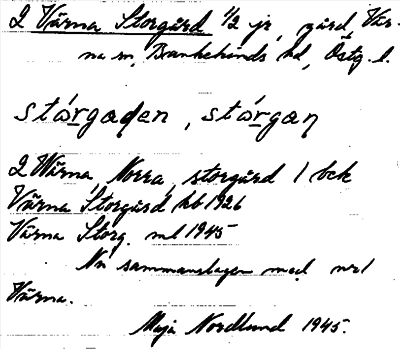 2 Värna Storgård 1/2 jr, gård Vär-
na sn, Bankekinds hd, Östg. l.
stórgaden, stórgan
2 Wärna, Norra, storgård 1 bck
Värna Storgård hb 1926
Värna Storg. ml 1945
Nu sammanslagen med nr 1
Värna.
Maja Nordlund 1945.